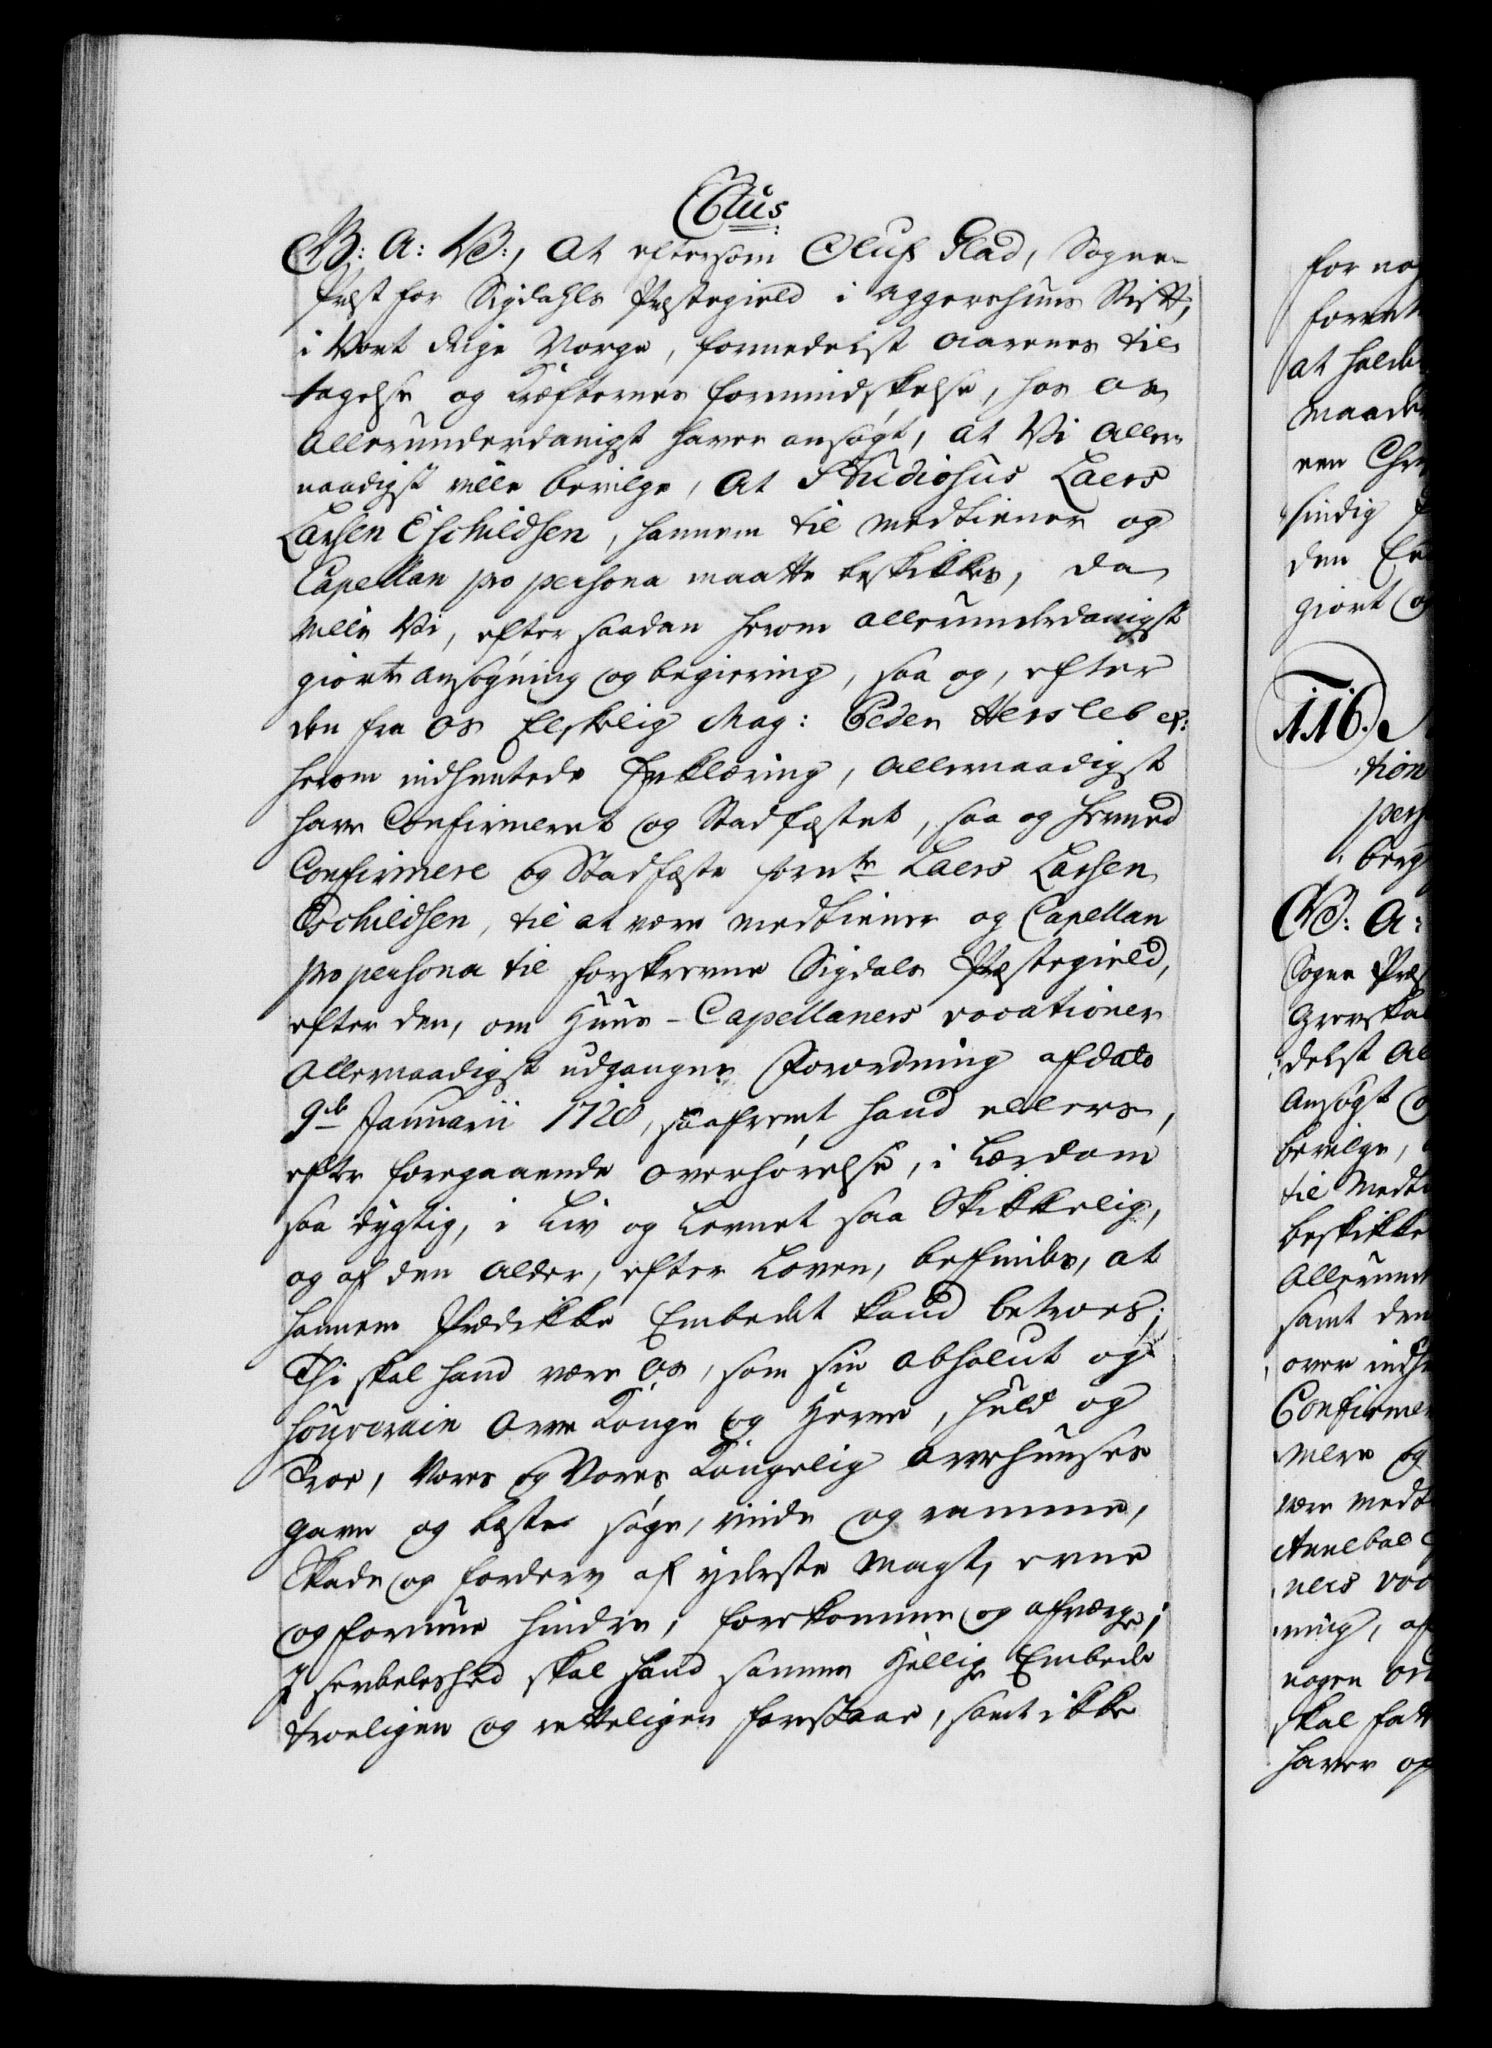 C6tus
G: A: V:, At eftersom Oluf Glad, Sogne-
Præst for Sigdahls Præstegield i Aggershuus Stift,
i Vort Rige Norge, formedelst Aarenes til-
tagelse og Kræfternes formindskelse, hos os
Allerunderdanigst haver ansøgt, at Vi Aller-
naadigst ville bevilge, At Studiosus Laers
Larsen Eschildsen, hannem til medtiener og
Capellan pro persona maatte beskikkes, da
ville Vi, efter saadan herom allerunderdanigst
giorte Ansøgning og begiering, saa og, efter
den fra Os Elskelig Mag: Peder Hersleb &:
herom indhentede Erklæring, Allernaadigst
have Confirmeret og Stadfæstet, saa og hermed
Confirmere og Stadfæste fornte Laers Larsen
Eschildsen, til at være medtiener og Capellan
pro persona til forskrevne Sigdals Præstegield,
efter den, om Huus-Capellaners vocationer
Allernaadigst udgangne Forordning af dato
9de Januarii 1720, saafremt hand ellers,
efter foregaaende Overhørelse, i Lærdom
saa dygtig, i Liv og Levnet saa Skikkelig,
og af den Alder, efter Loven, befindes, at
hannem Prædikke Embedet kand betroes;
Thi skal hand være Os, som sin absolut og
souverain Arve Konge og Herre, huld og
Troe, Vores og Vores Kongelig Arvehuuses
gavn og beste søge, vinde og ramme,
Skade og forderv af yderste Magt, evne
og formue hindre, forrekomme og afværge;
I serdeleshed skal hand samme Hellige Embede
troeligen og retteligen forestaae, samt ikke
for nog
at hold
Maade
een Chr
sindig
den
giort og
116.
tion
pers
berg
V: A:
Sogne Præs
Grevska
delst Al
Ansøgt og
bevilge,
til Medti
beskikke
Allerund
samt den
over indh
Confirme
mere og
være medt
ners voc
ning, af
nogen
skal
haver op